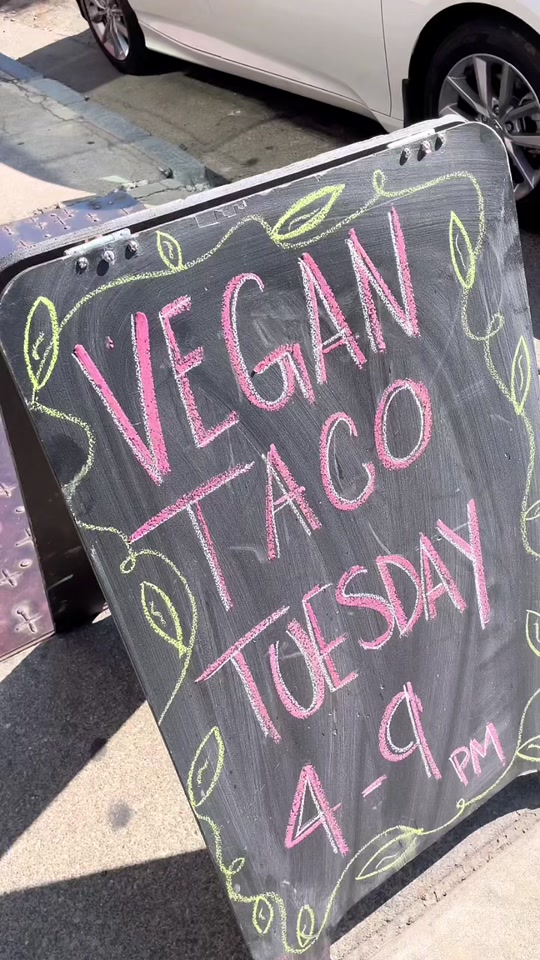 VEGAN
TACO
TUESDAY
4-9 PM